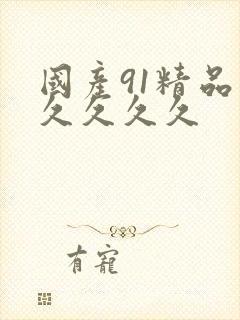 國產91精品
久久久久
有寵